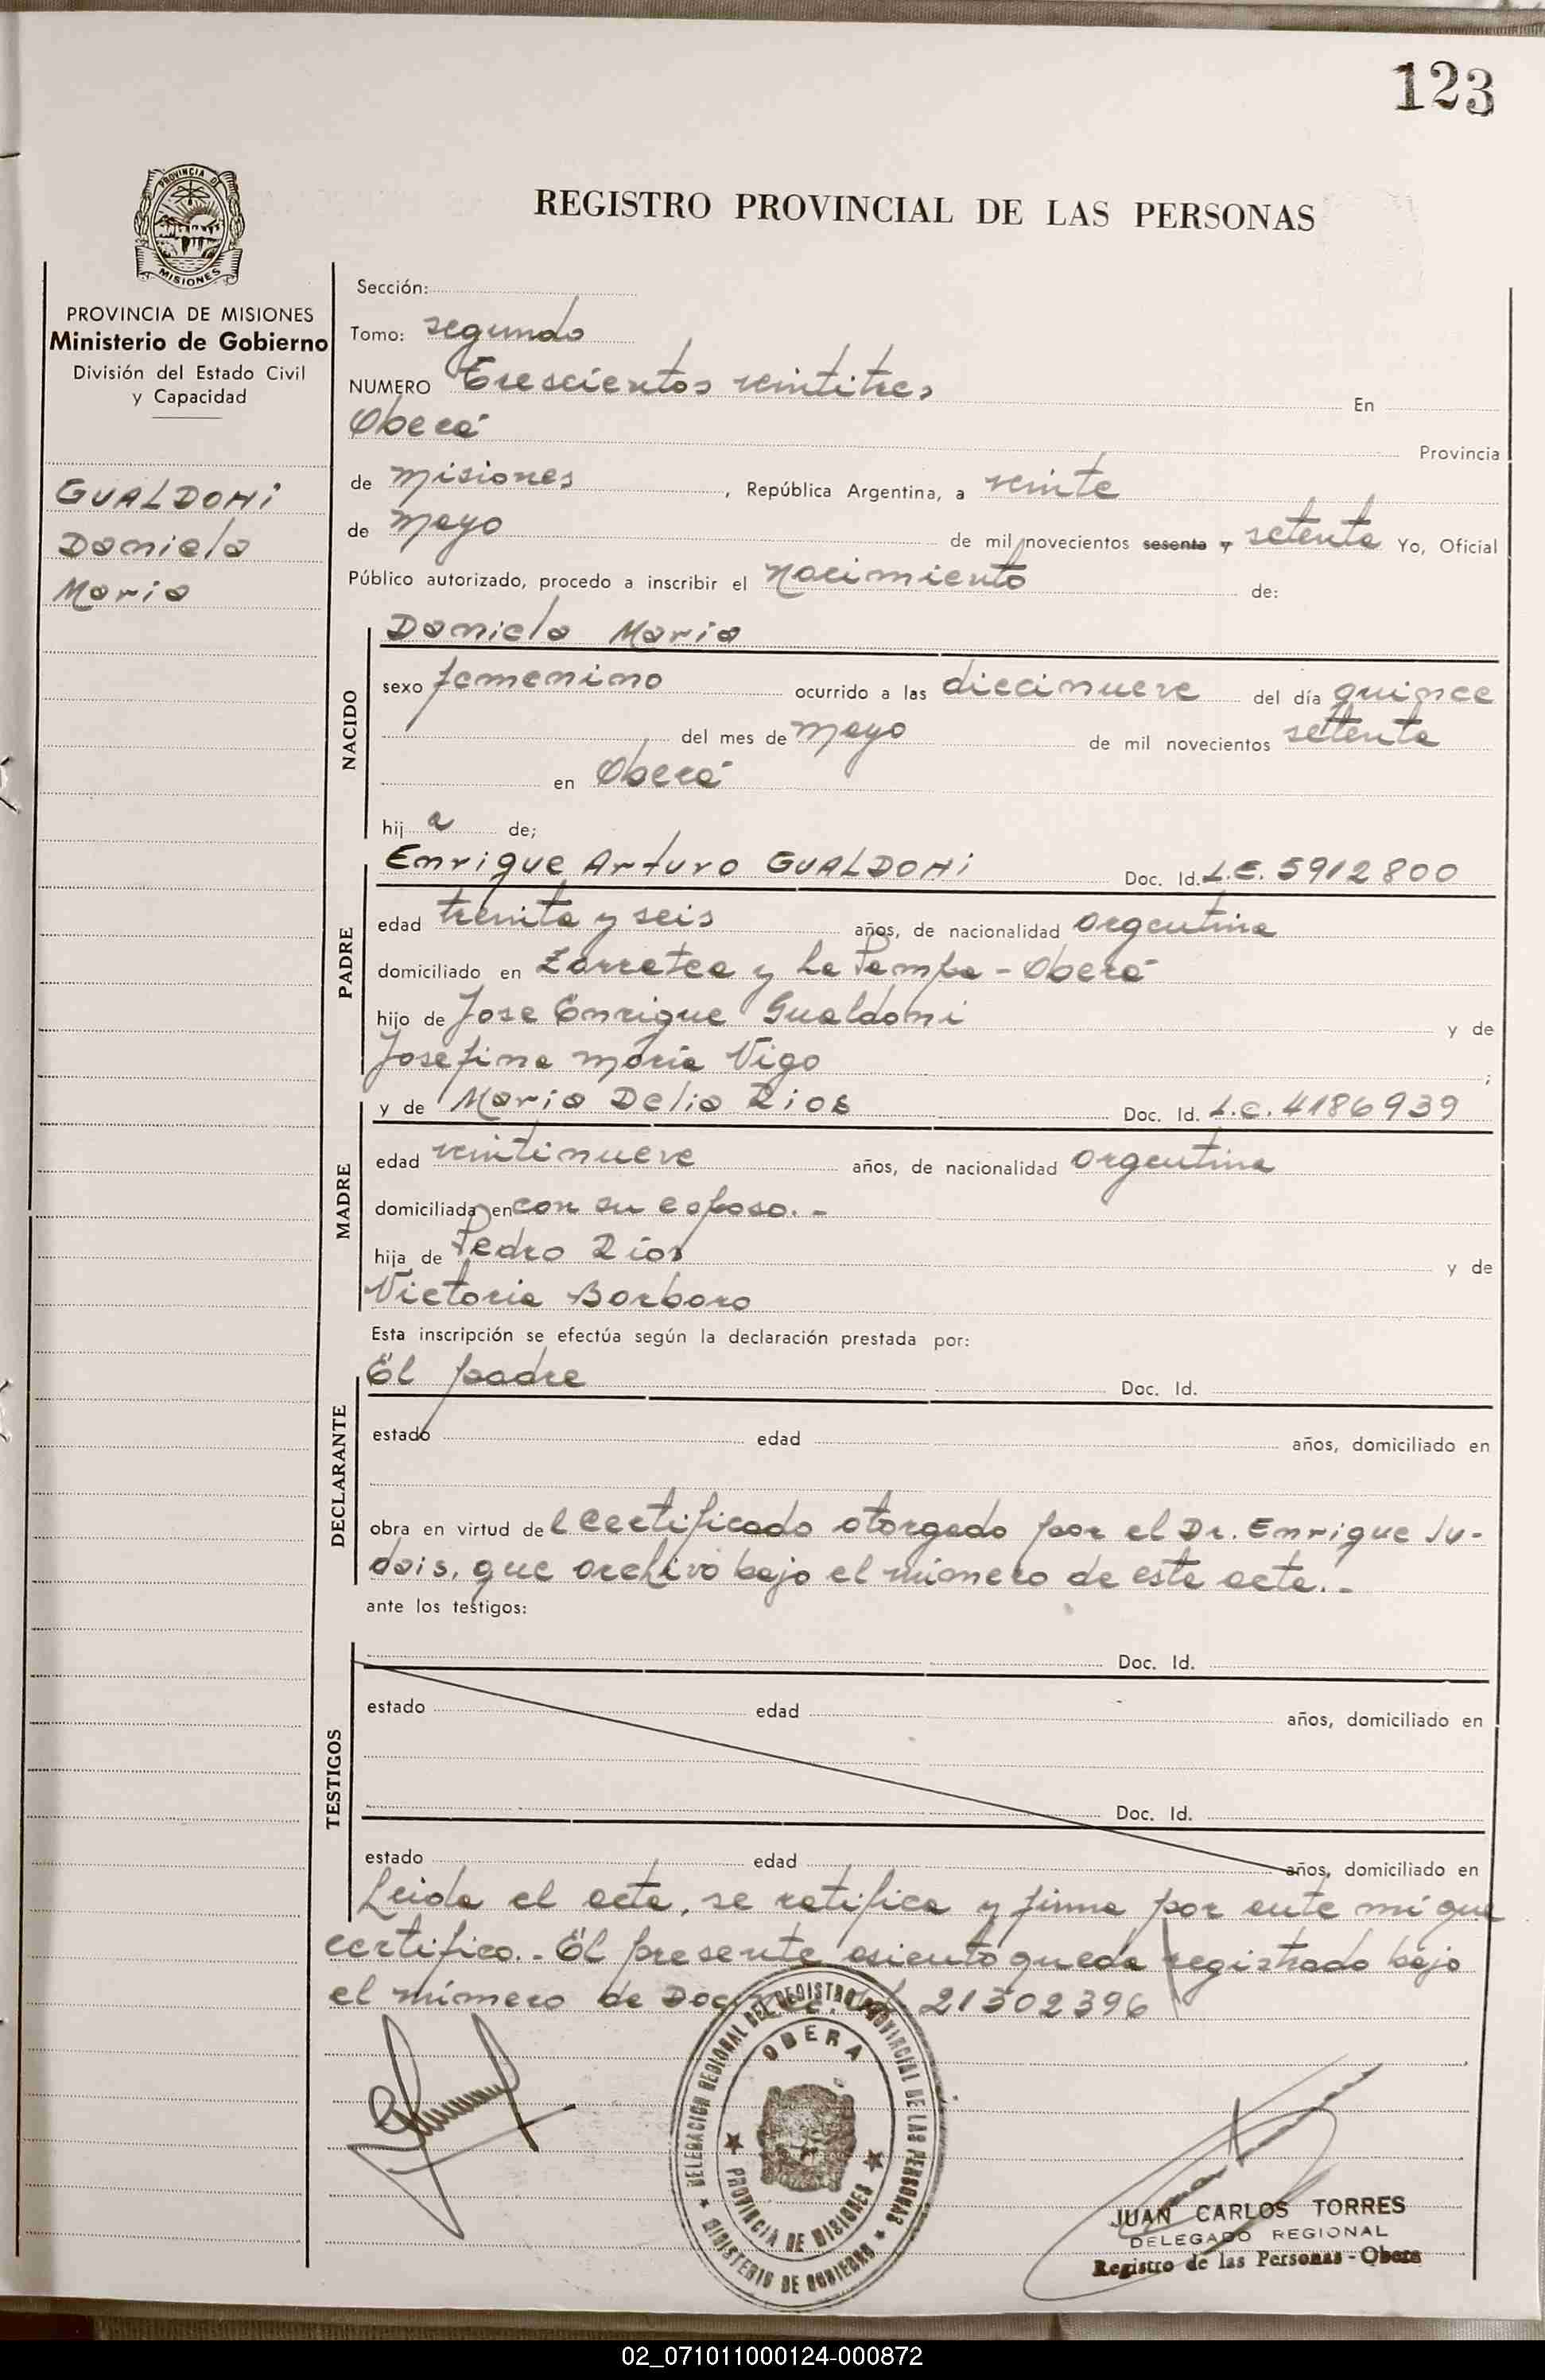 123
PROVINCIA DE
MISIONES
REGISTRO PROVINCIAL DE LAS PERSONAS
PROVINCIA DE MISIONES
Ministerio de Gobierno
División del Estado Civil
y Capacidad
GUALDONi
Daniela
Maria
Sección:
Tomo: segundo
NUMERO Trescientos veintitres En
Oberá Provincia
de misiones, República Argentina, a veinte
de mayo de mil novecientos sesenta y setenta Yo, Oficial
Público autorizado, procedo a inscribir el nacimiento de:
NACIDO
Daniela Maria
sexo femenino ocurrido a las diecinueve del día quince
del mes de mayo de mil novecientos setenta
en Oberá
hij a de;
PADRE
Enrique Arturo GUALDONi Doc. Id. L.E. 5912800
edad treinta y seis años, de nacionalidad argentina
domiciliado en Larretea y La Pampa - Oberá
hijo de Jose Enrique Gualdoni y de
Josefina maria Vigo ;
MADRE
y de Maria Delia Rios Doc. Id. L.C. 4186939
edad veintinueve años, de nacionalidad argentina
domiciliada en con su esposo. -
hija de Pedro Rios y de
Victoria Borboro
Esta inscripción se efectúa según la declaración prestada por:
DECLARANTE
El padre Doc. Id.
estado edad años, domiciliado en
obra en virtud del certificado otorgado por el Dr. Enrique Ju-
dais, que archivo bajo el número de este acta. -
ante los testigos:
TESTIGOS
Doc. Id.
estado edad años, domiciliado en
Doc. Id.
estado edad años, domiciliado en
Leida el acta, se ratifica y firma por ante mí que
certifico. - El presente asiento queda registrado bajo
el número de Doc. 21302396
DELEGACION REGIONAL DEL REGISTRO PROVINCIAL DE LAS PERSONAS
MINISTERIO DE GOBIERNO
OBERA
PROVINCIA DE MISIONES
JUAN CARLOS TORRES
DELEGADO REGIONAL
Registro de las Personas - Obera
02_071011000124-000872